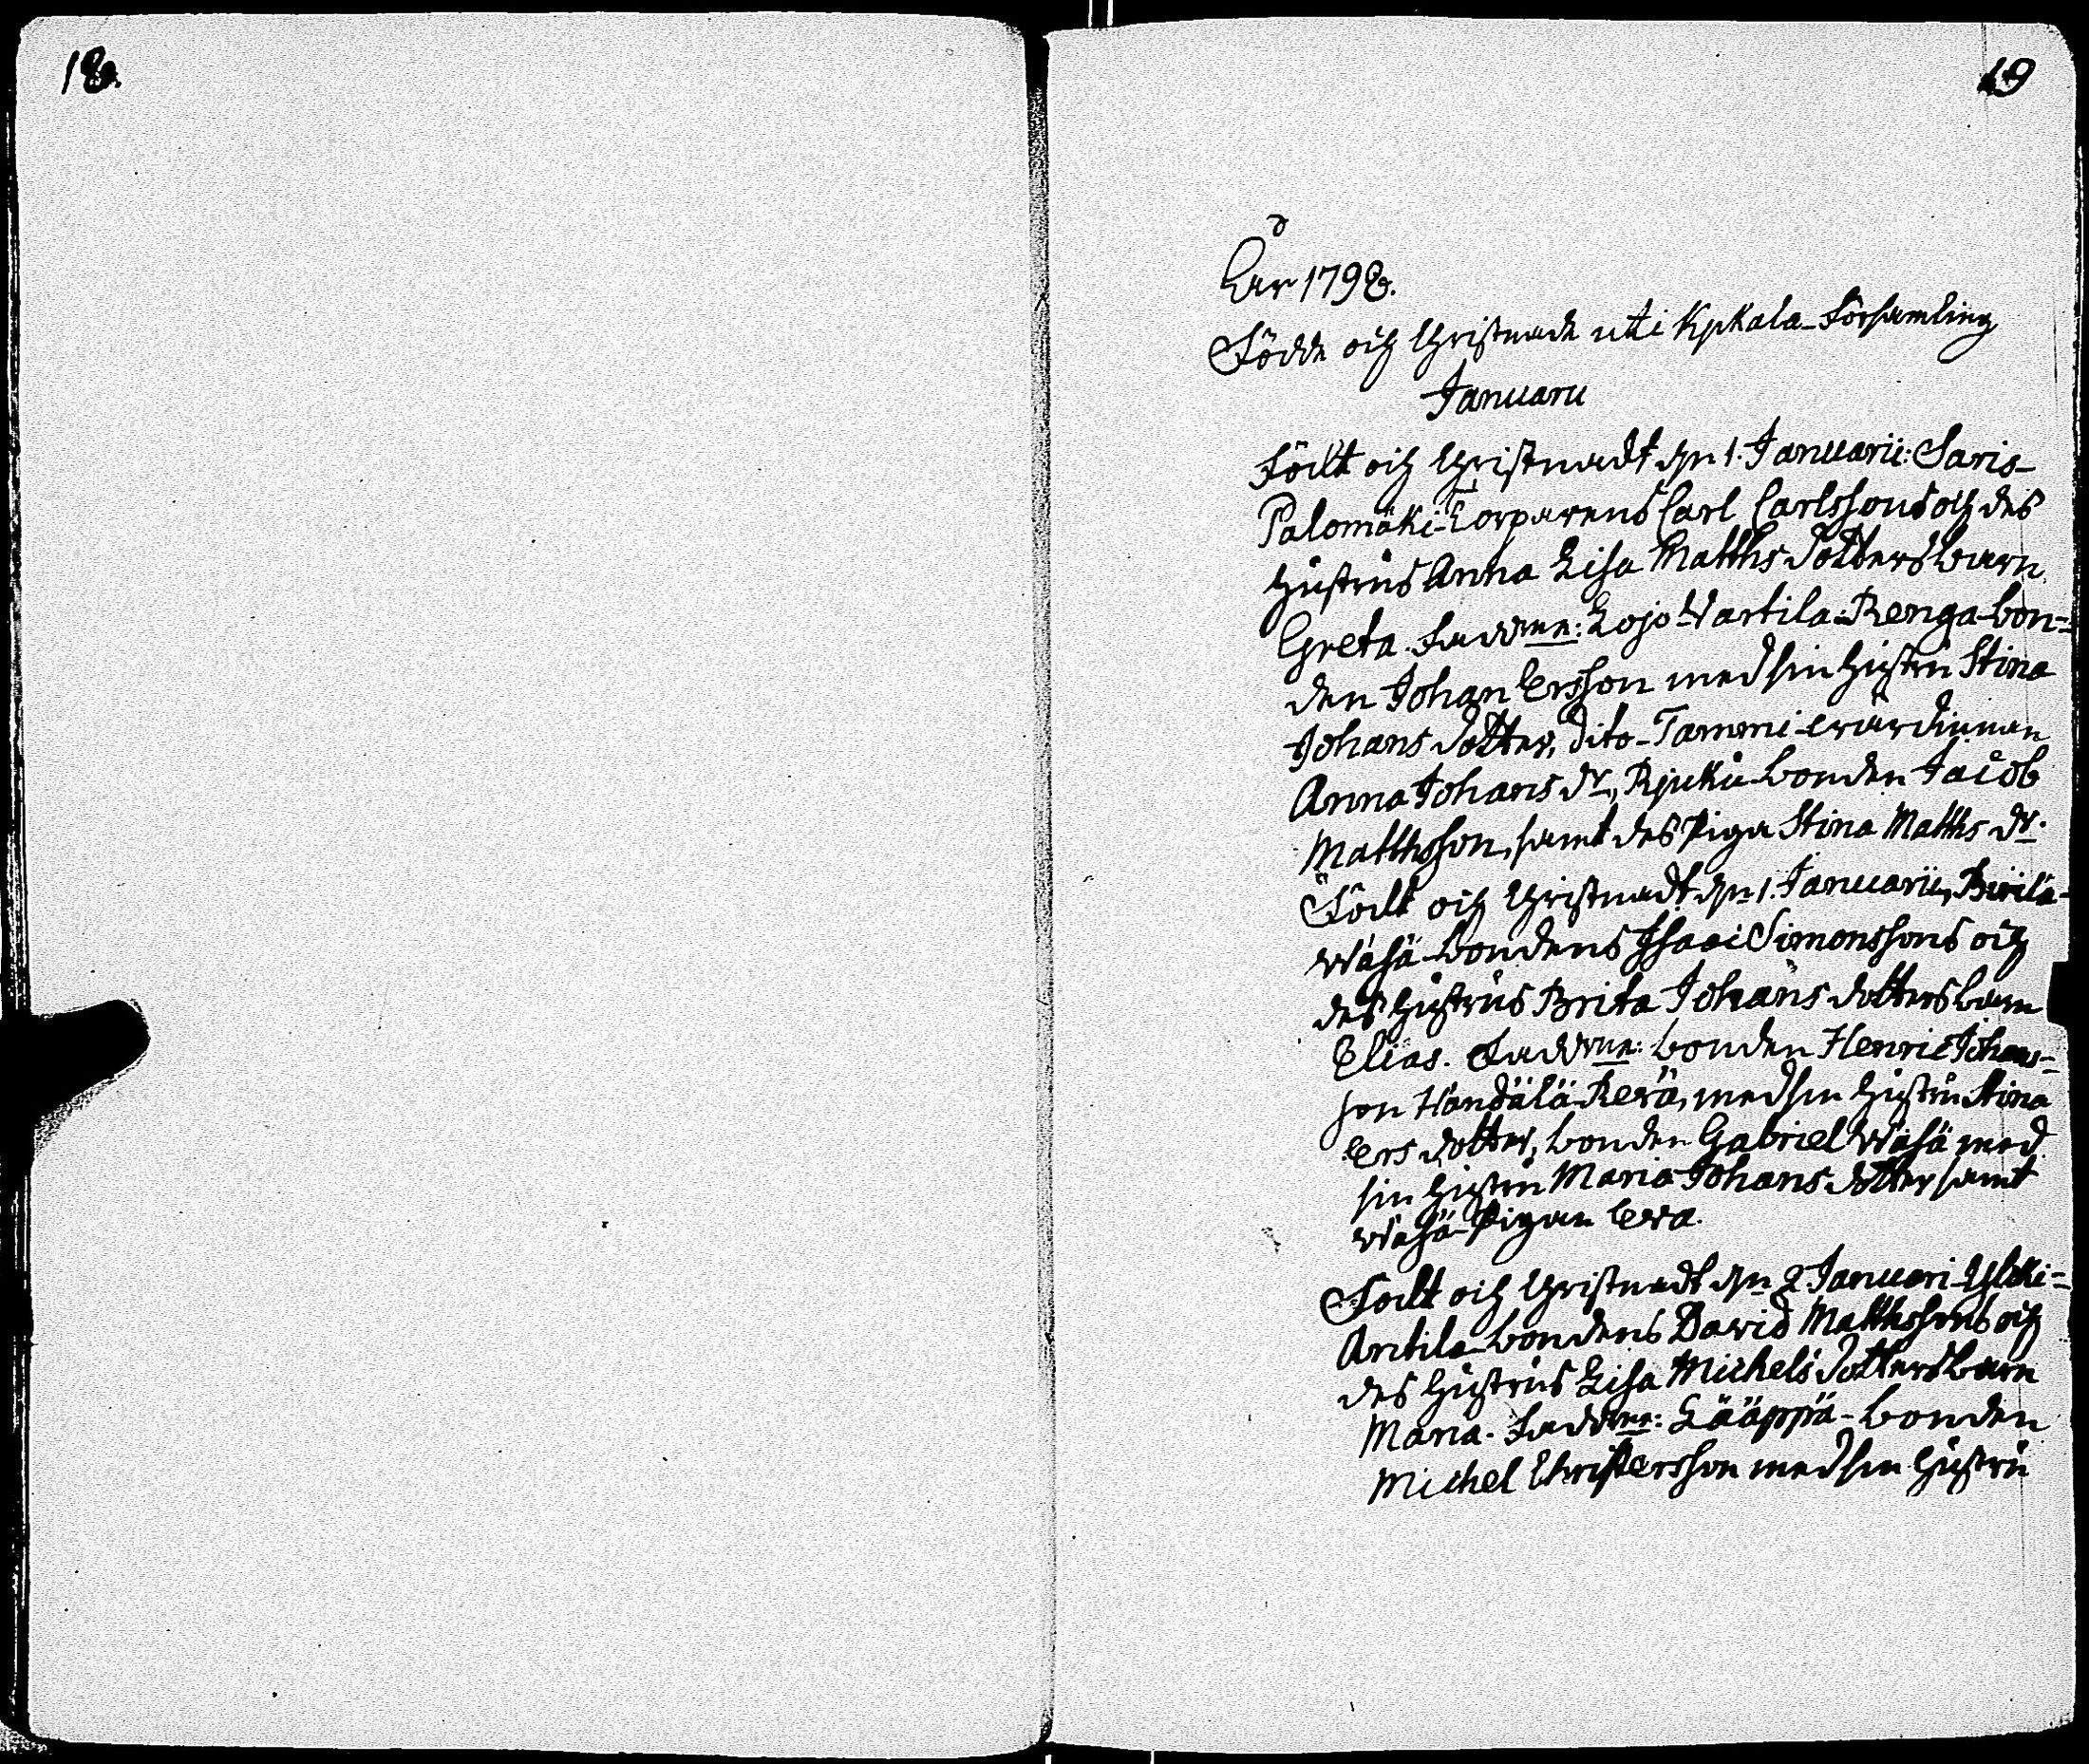 18.
19
År 1798.
Födde och Christnade uti Kjikala Församling
Januarii
Födt och Christnadt den 1. Januarii: Saris-
Palomäki-Torparens Carl Carlssons och des
Hustrus Anna Lisa Matths Dotters barn
Greta. Faddrne: Lojo Vartila-Renga-bon=
den Johan Ersson med sin hustru Stina
Johans Dotter, Dito-Tammi-
Anna Johans dr, bonden Jacob
Matthsson, samt des Piga Stina Matths dr.
Födt och Christnadt den 1. Januarii,
Wähä-bondens Isaci Simonssons och
des Hustrus Brita Johans dotters barn
Elias. Faddrne: bonden Henric Johans=
son Händälä-Kerä, med sin hustru Stina
Ers dotter, bonden Gabriel Wähä med
sin hustru Maria Johans dotter samt
Wähä-Pigan Eva.
Födt och Christnadt den 2. Januari Ylski=
Antila-bondens David Matthssons och
des Hustrus Lisa Michels Dotters barn
Maria. Faddrne: Lääppä-bonden
Michel Christersson med sin hustru